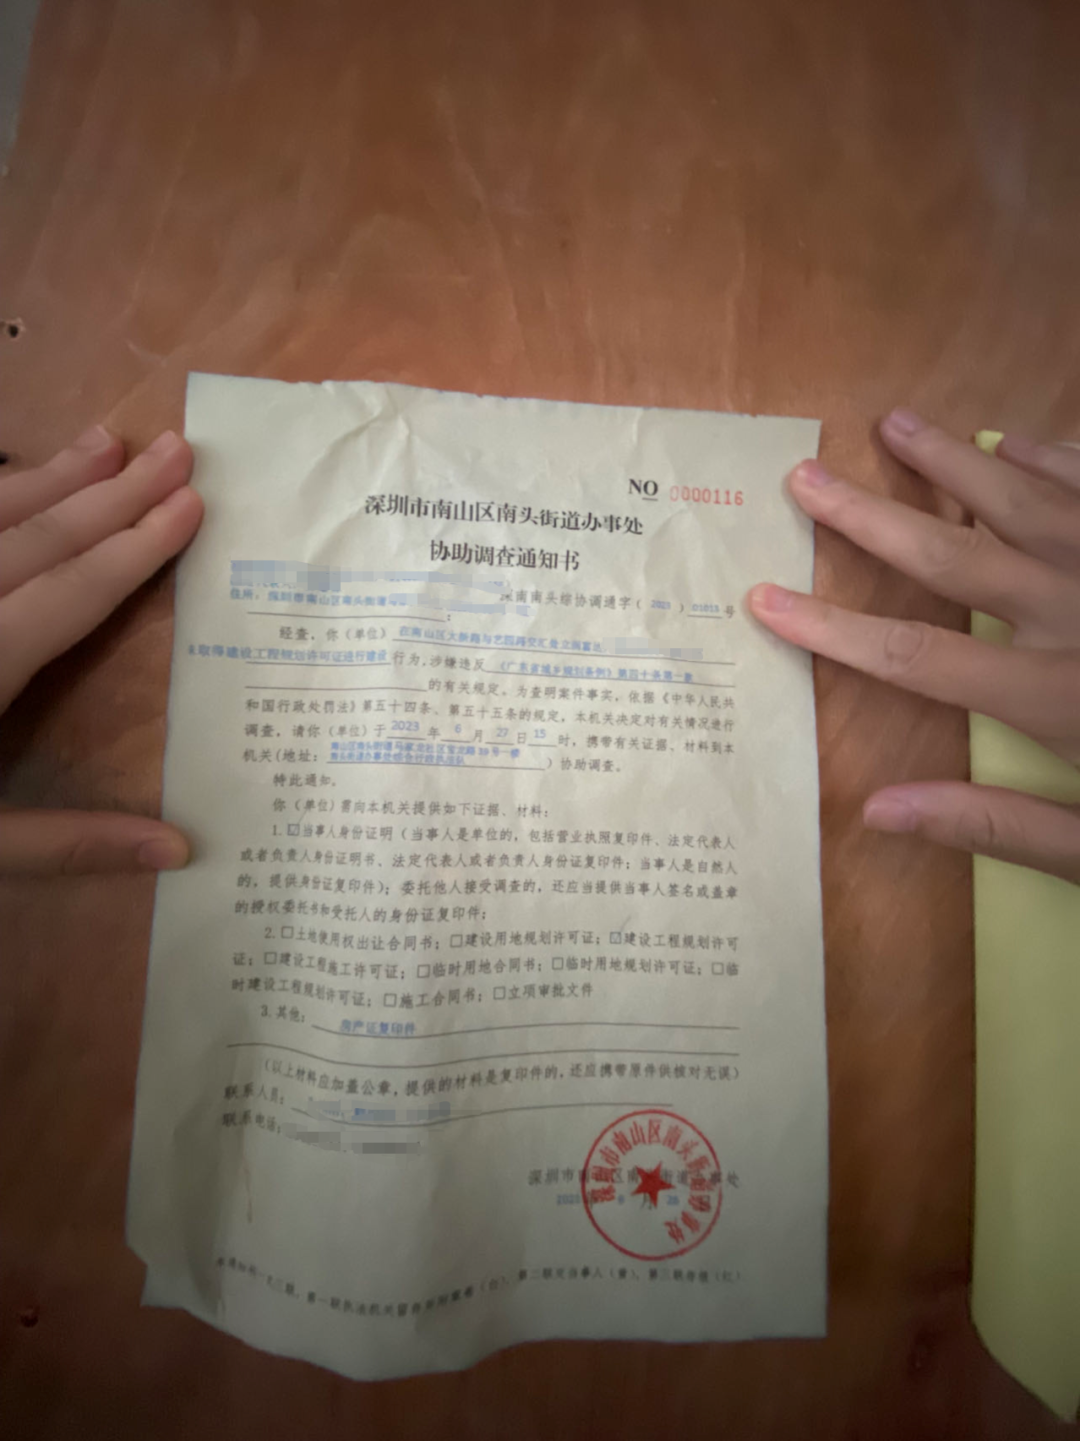 NO 0000116
深圳市南山区南头街道办事处
协助调查通知书
深南南头综协调通字(2023)01013号
住所:深圳市南山区南头街道
经查,你(单位)在南山区大新路与艺园路交汇处
未取得建设工程规划许可证进行建设行为,涉嫌违反《广东省城乡规划条例》第四十条第一款
的有关规定。为查明案件事实,依据《中华人民共
和国行政处罚法》第五十四条、第五十五条的规定,本机关决定对有关情况进行
调查,请你(单位)于2023年6月27日15时,携带有关证据、材料到本
机关(地址:南山区南头街道马家龙社区
南头街道办事处综合行政执法队)协助调查。
特此通知。
你(单位)需向本机关提供如下证据、材料:
1.☑当事人身份证明(当事人是单位的,包括营业执照复印件、法定代表人
或者负责人身份证明书、法定代表人或者负责人身份证复印件;当事人是自然人
的,提供身份证复印件);委托他人接受调查的,还应当提供当事人签名或盖章
的授权委托书和受托人的身份证复印件;
2.□土地使用权出让合同书;□建设用地规划许可证;☑建设工程规划许可
证;□建设工程施工许可证;□临时用地合同书;□临时用地规划许可证;□临
时建设工程规划许可证;□施工合同书;□立项审批文件
3.其他:房产证复印件
(以上材料应加盖公章,提供的材料是复印件的,还应携带原件供核对无误)
联系人员:
联系电话:
深圳市南山区南头街道办事处
深圳市南山区南头街道办事处
第二联交当事人(黄),第三联存根(红)